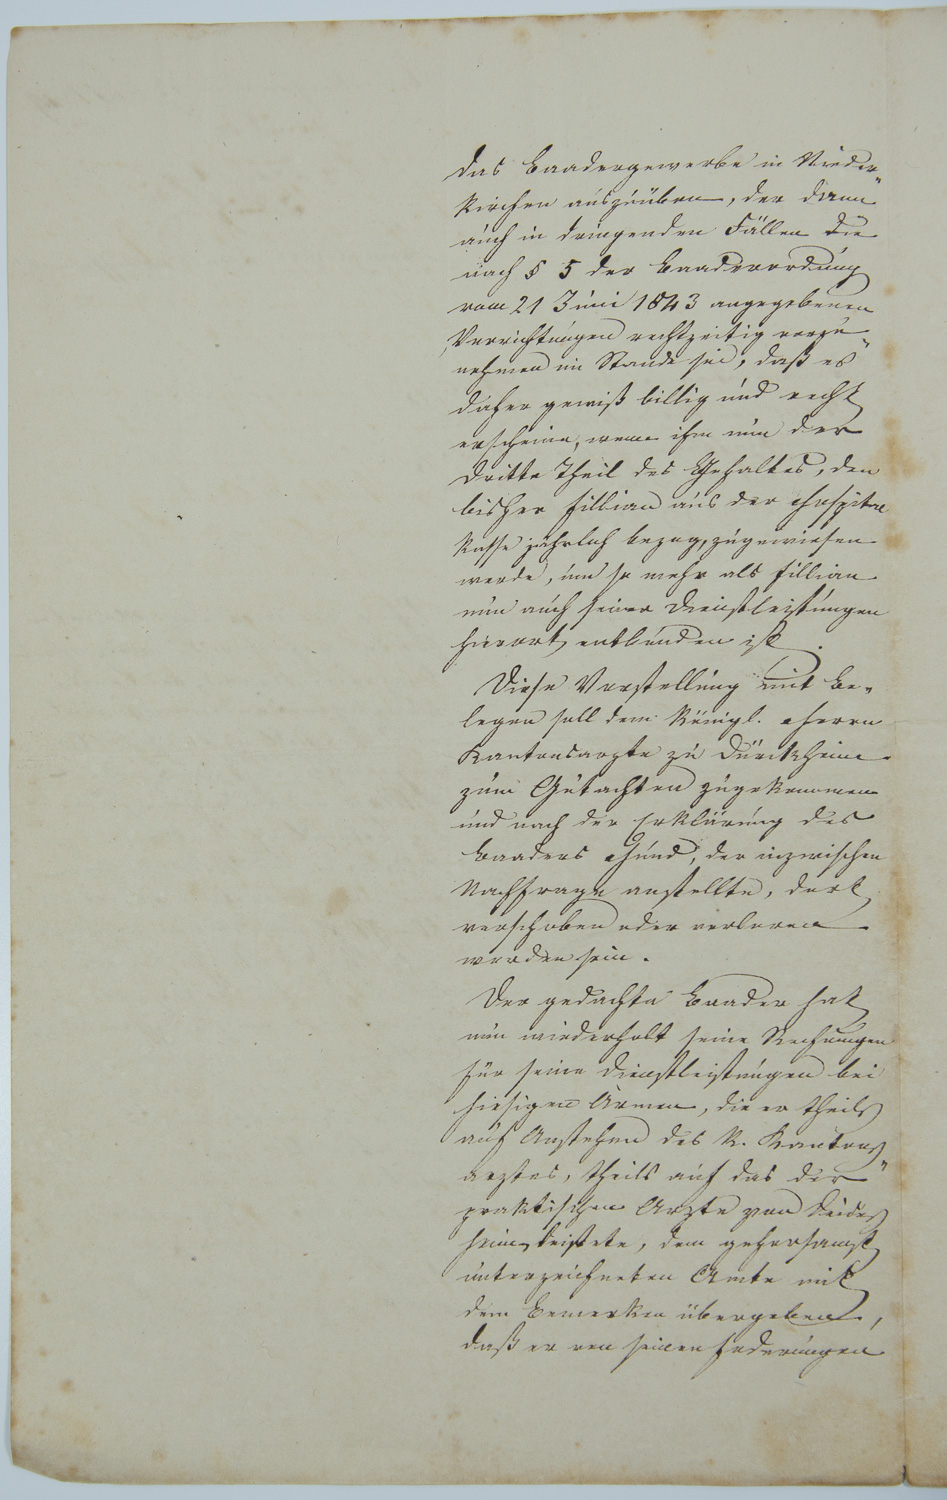 das Baadergewerbe in Nieder-
kirchen auszuüben, der dann
auch in dringenden Fällen die
nach § 5 der Baaderordung
vom 21 Juni 1843 angegebenen
Verrichtungen rechtzeitig vorzu-
nehmen im Stande sei, daß es
daher gewiß billig und recht
erscheine, wenn ihm nun der
dritte Theil des Gehaltes, den
bisher Fillian aus der Hospital
Kasse jährlich bezog, zugewiesen
werde, um so mehr als Fillian
nun auch seiner Dienstleistungen
hierort entbunden ist.
Diese Vorstellung mit Be-
legen soll dem Königl. Herrn
Kantonsarzte zu Dürckheim
zum Gutachten zugekommen
und nach der Erklärung des
Baaders Hund, der inzwischen
Nachfrage anstellte, dort
verschoben oder verloren
worden sein.
Der gedachte Baader hat
nun wiederholt seine Rechnungen
für seine Dienstleistungen bei
hiesigen Armen, die er theils
auf Anstehen des K. Kantons-
arztes, theils auf das der
praktischen Arzte von Deides
heim leistete, dem gehorsamst
unterzeichneten Amte mit
dem Bemerken übergeben,
daß er von seinen Foderungen